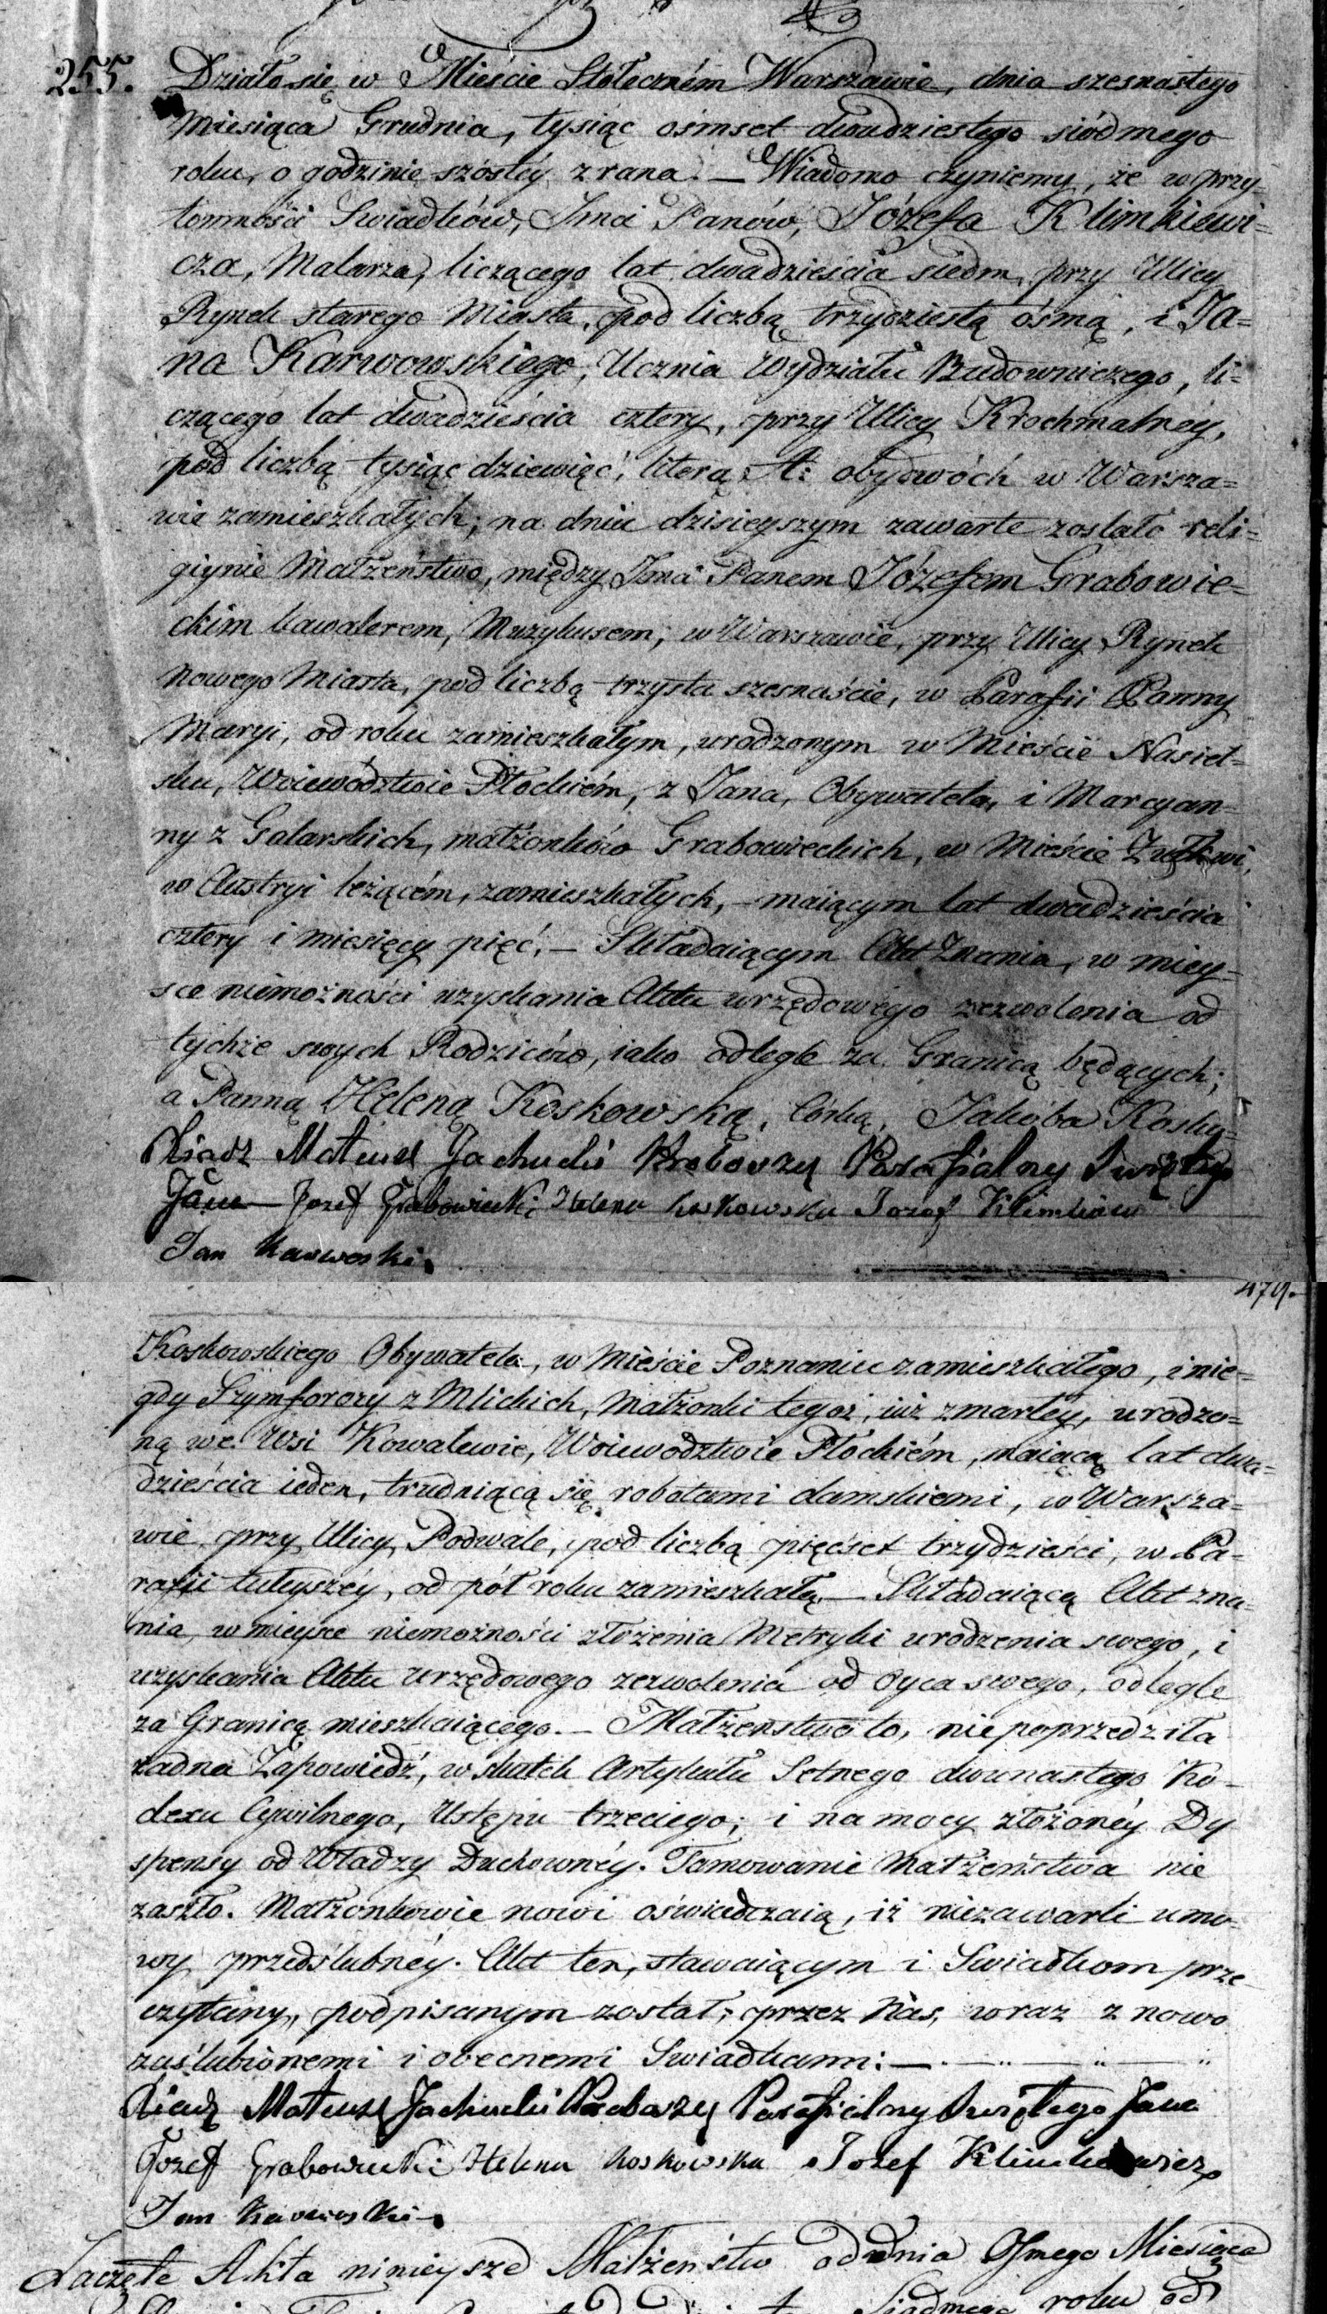 255. Działo się w Mieście Stołeczném Warszawie, dnia szesnastego
Miesiąca Grudnia, tysiąc ośmset dwudziestego siódmego
roku, o godzinie szóstéy zrana. — Wiadomo czyniemy, że w przy-
tomności Swiadków, Jmci Panów, Józefa Klimkiewi=
cza, Malarza, liczącego lat dwadzieścia siedm, przy Ulicy
Rynek starego Miasta, pod liczbą trzydziestą ósmą, i Ja=
na Karwowskiego, Ucznia Wydziału Budowniczego, li=
czącego lat dwadzieścia cztery, przy Ulicy Krochmalnéy,
pod liczbą tysiąc dziewięć, literą A: obydwóch w Warsza=
wie zamieszkałych; na dniu dzisieyszym zawarte zostało reli=
giynie Małżeństwo, między Jmci Panem Józefem Grabowie=
ckim kawalerem, Muzykusem, w Warszawie, przy Ulicy Rynek
nowego Miasta, pod liczbą trzysta szesnaście, w Parafii Panny
Maryi, od roku zamieszkałym, urodzonym w Mieście Nasiel=
sku, Woiewództwie Płockiém, z Jana, Obywatela, i Marcyan=
ny z Galarskich, małżonków Grabowieckich, w Mieście
w Austryi leżącém, zamieszkałych, — maiącym lat dwadzieścia
cztery i miesięcy pięć. — Składaiącym Akt Znania, w miey=
sce niemożności uzyskania Aktu urzędowego zezwolenia od
tychże swych Rodziców, iako odległe za Granicą będących;
a Panną Heleną Koskowską, Córką, Jakóba Kosko=
Xiądz Mateusz Jachucki Proboszcz Parafialny Swiętego
Jana — Jozef Grabowiecki Helena Koskowska Jozef Klimkiew
Jan Karwoski.
479.
Koskowskiego Obywatela, w Mieście Poznaniu zamieszkałego, i nie=
gdy Szymforozy z Mlickich, Małżonki tegoż, iuż zmarłey, urodzo=
ną we Wsi Kowalewie, Woiewództwie Płockiém, maiącą lat dwa=
dzieścia ieden, trudniącą się robotami damskiemi, w Warsza=
wie, przy Ulicy Podwale, pod liczbą pięćset trzydzieści, w Pa=
rafii tuteyszéy, od pół roku zamieszkałą. — Składaiącą Akt zna=
nia, w mieysce niemożności złożenia Metryki urodzenia swego, i
uzyskania Aktu urzędowego zezwolenia od Oyca swego, odlegle
za Granicą mieszkaiącego. — Małżeństwo to, nie poprzedziła
żadna Zapowiedź, w skutek Artykułu Setnego dwunastego Ko=
dexu Cywilnego, Ustępu trzeciego; i na mocy złożonéy Dy
spensy od Władzy Duchownéy. Tamowanie Małżeństwa nie
zaszło. Małżonkowie nowi oświadczaią, iż niezawarli umo=
wy przedślubnéy. Akt ten, stawaiącym i Swiadkom prze=
czytany, podpisanym został; przez Nas, wraz z nowo
zaślubionemi i obecnemi Swiadkami: —
Xiądz Mateusz Jachucki Proboszcz Parafialny Swiętego Jana
Jozef Grabowiecki Helena Koskowska Jozef Klimkiewicz
Jan Karwoski.
Zaczęte Akta ninieysze Małżeństw od dnia Osmego Miesiąca
Siódmego roku od